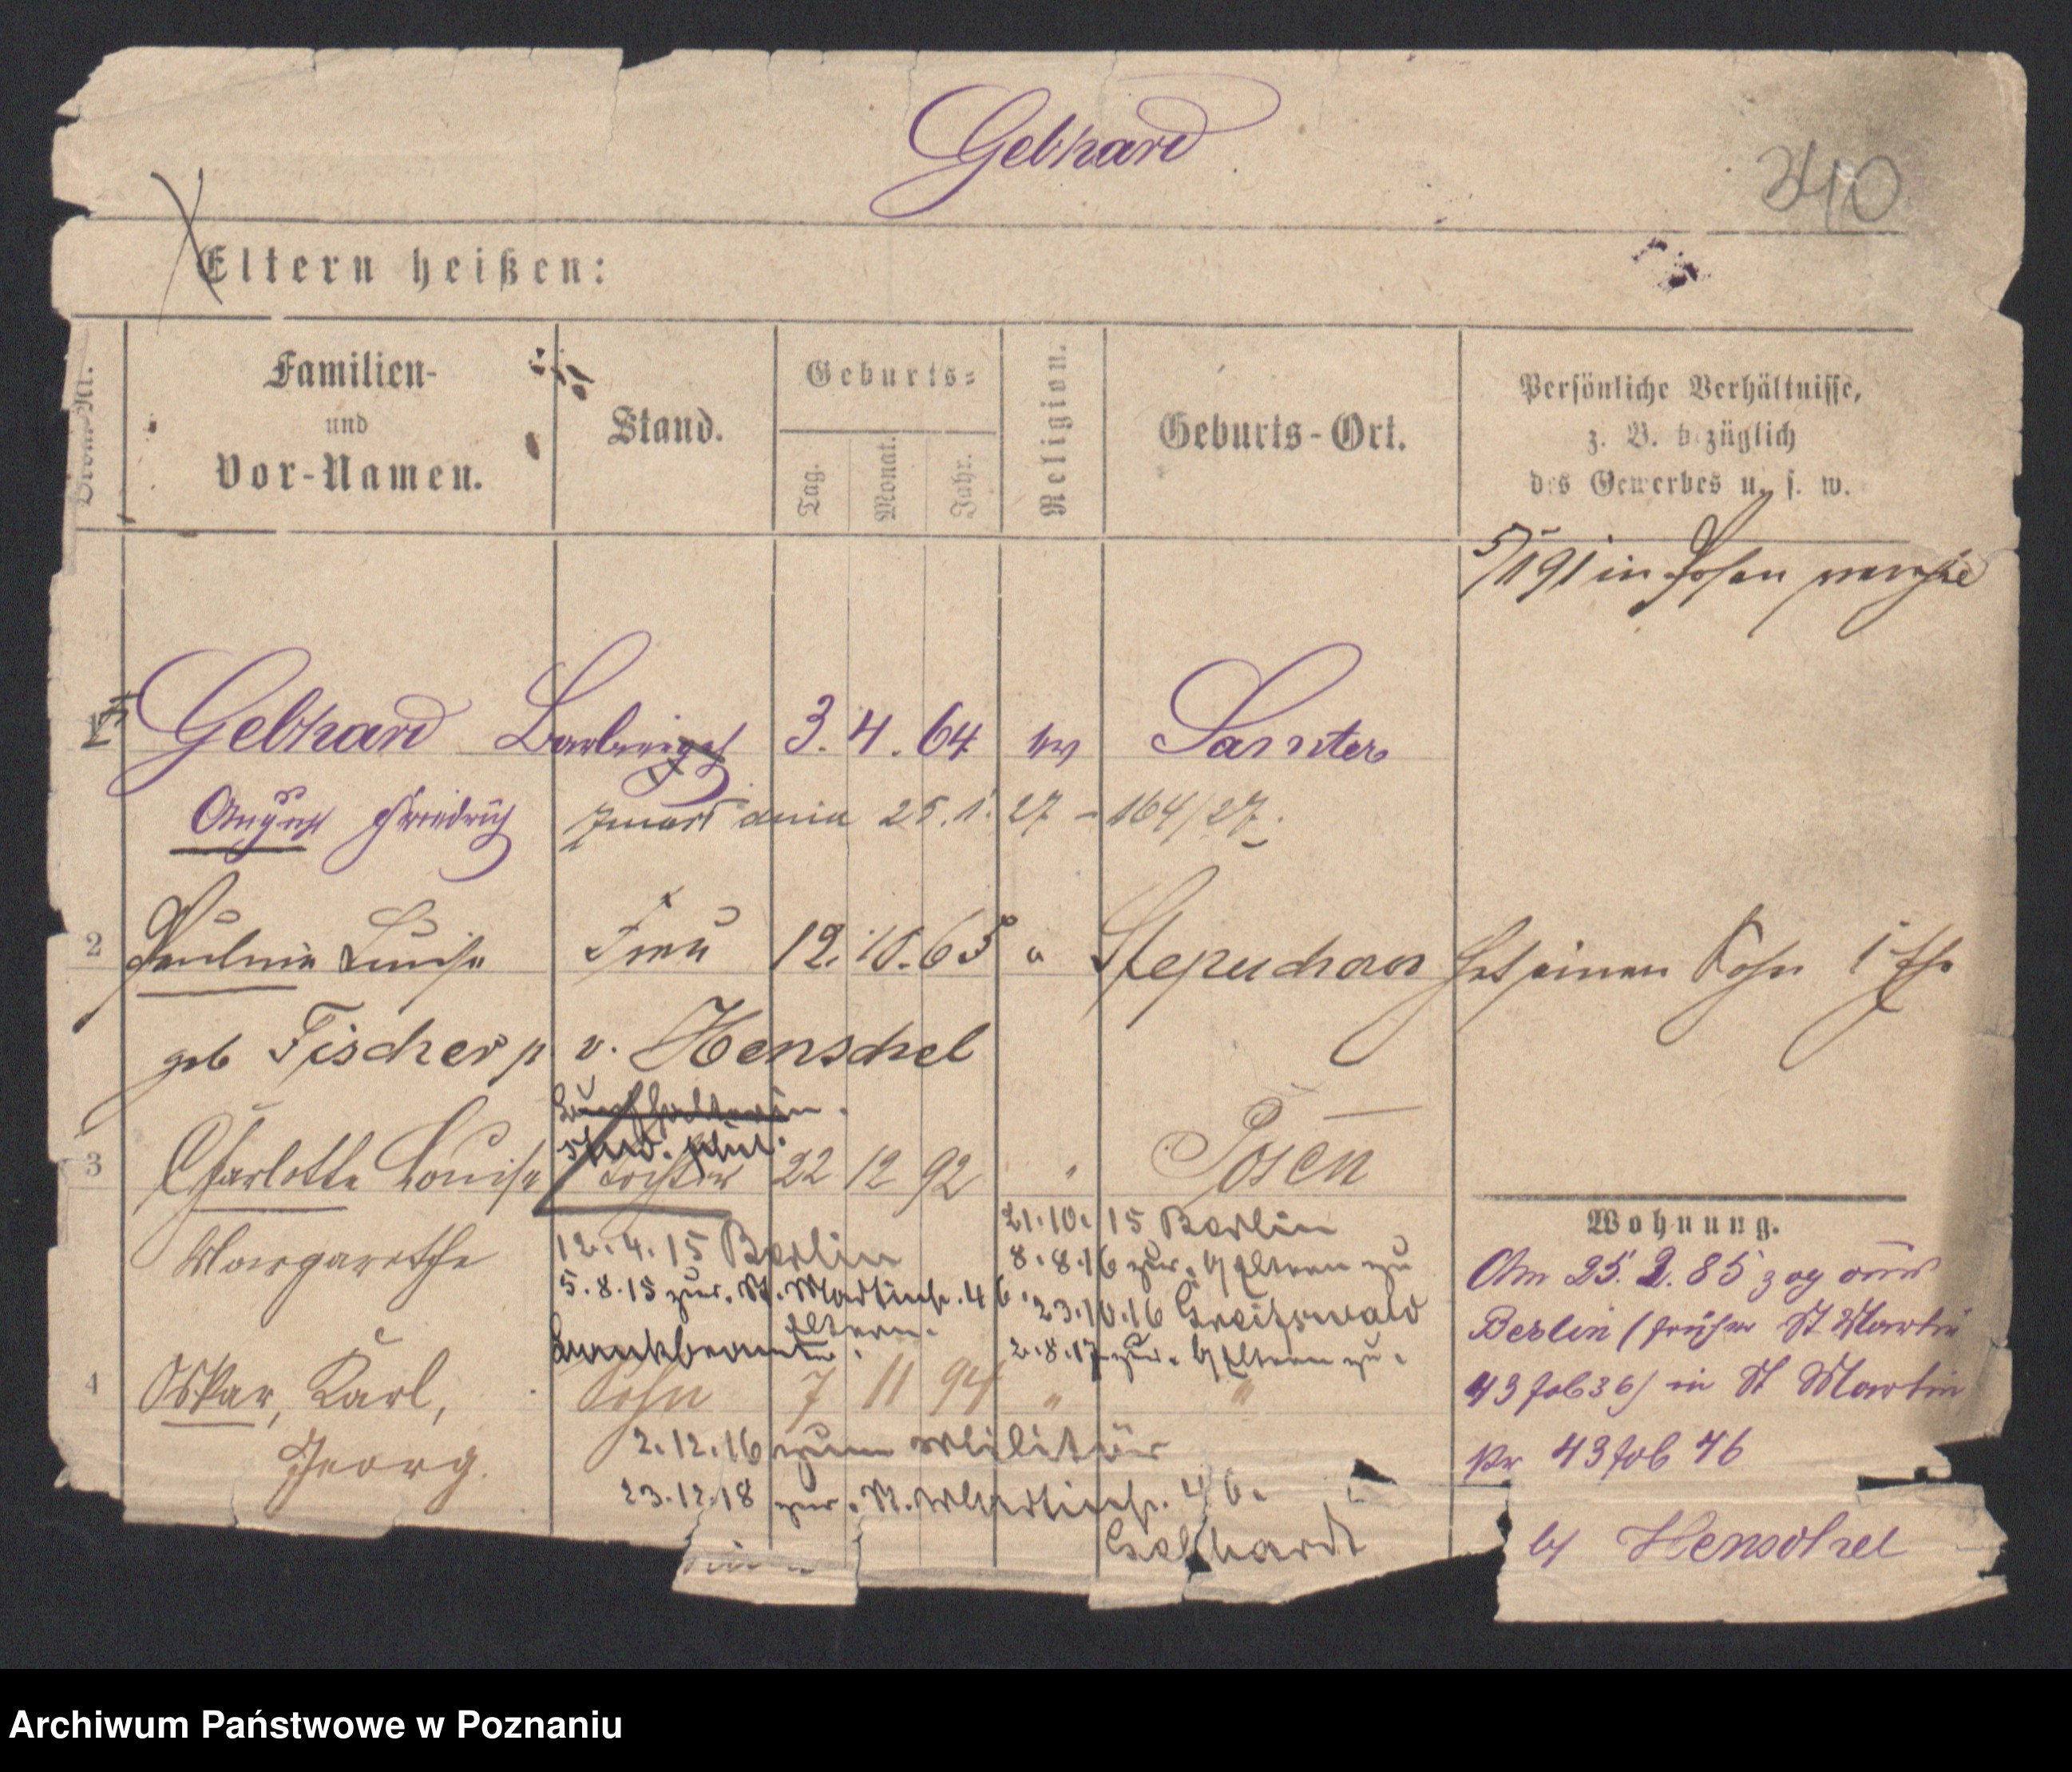 Gebhard
340
Eltern heißen:
Nr.
Familien-
und
Vor-Namen.
Stand.
Geburts-
Tag.
Monat.
Jahr.
Religion.
Geburts-Ort.
Persönliche Verhältnisse,
z. B. bezüglich
des Gewerbes u. s. w.
in Posen
1 Gebhard 3. 4. 64 ev Samter
August Friedrich zmarł dnia 25. 1. 27 - 164/27.
2 Luise Frau 12. 10. 65 " hat einen Sohn
geb Fischer v. Henschel
Buchhalterin.
stud. phil.
3 Charlotte Louise Tochter 22 12 92 " Posen
Margarethe
12. 4. 15 Berlin
5.8.15 zur. St. Martinstr. 46.
Eltern.
21.10.15 Berlin
8.8.16 zur. Eltern zu
23.10.16 Greifswald
2.8.17 zur. Eltern zu.
Bankbeamter.
4 Oskar, Karl, Sohn 7 11 94 " "
Georg.
2.12.16 zum Militär
23.12.18 zur. St. Martinstr. 46.
Gebhardt
Wohnung.
Am 25. 2. 85 zog aus
Berlin (früher St Martin
43 36) in St Martin
Nr 43 46
by Henschel
Archiwum Państwowe w Poznaniu